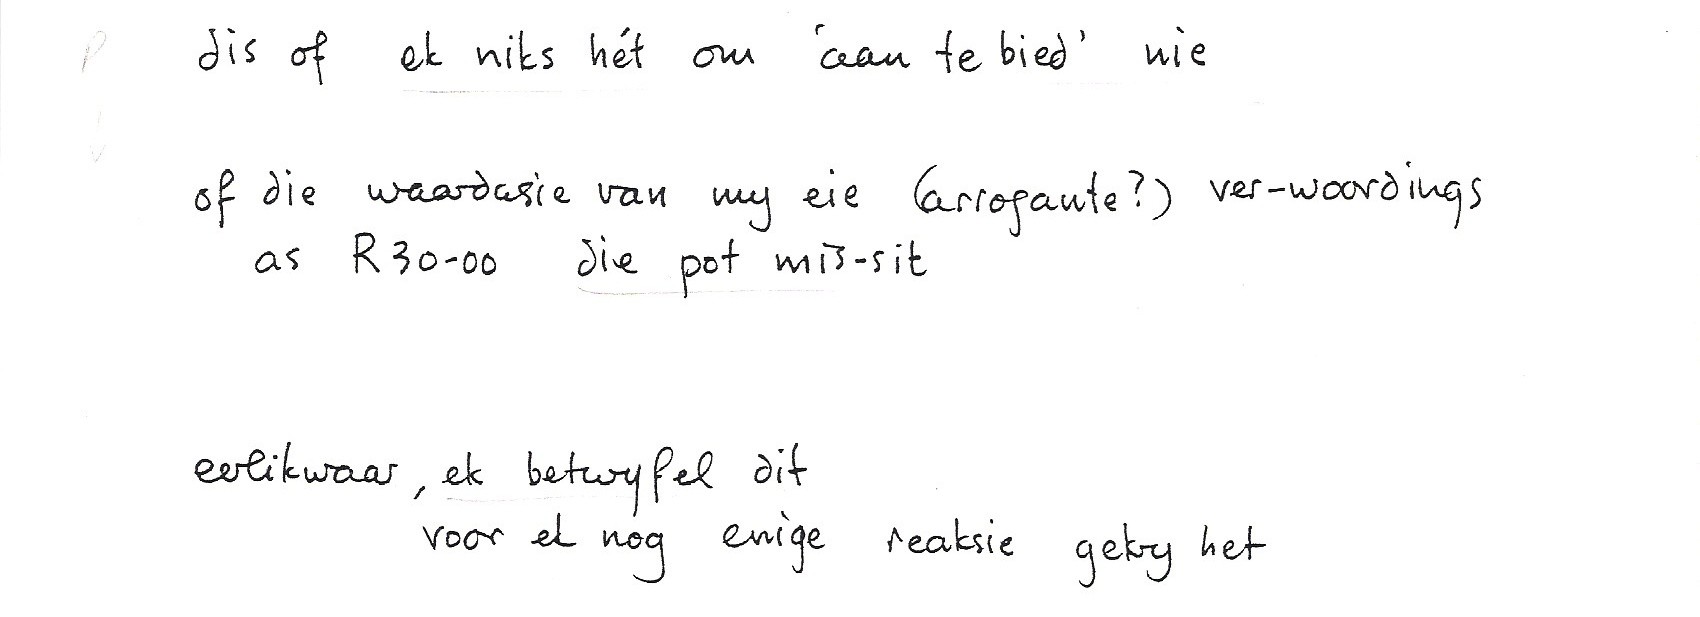 dis of ek niks hét om 'aan te bied' nie
of die waardasie van my eie (arrogante?) ver-woordings
as R30-00 die pot mis-sit
eerlikwaar, ek betwyfel dit
voor ek nog enige reaksie gekry het